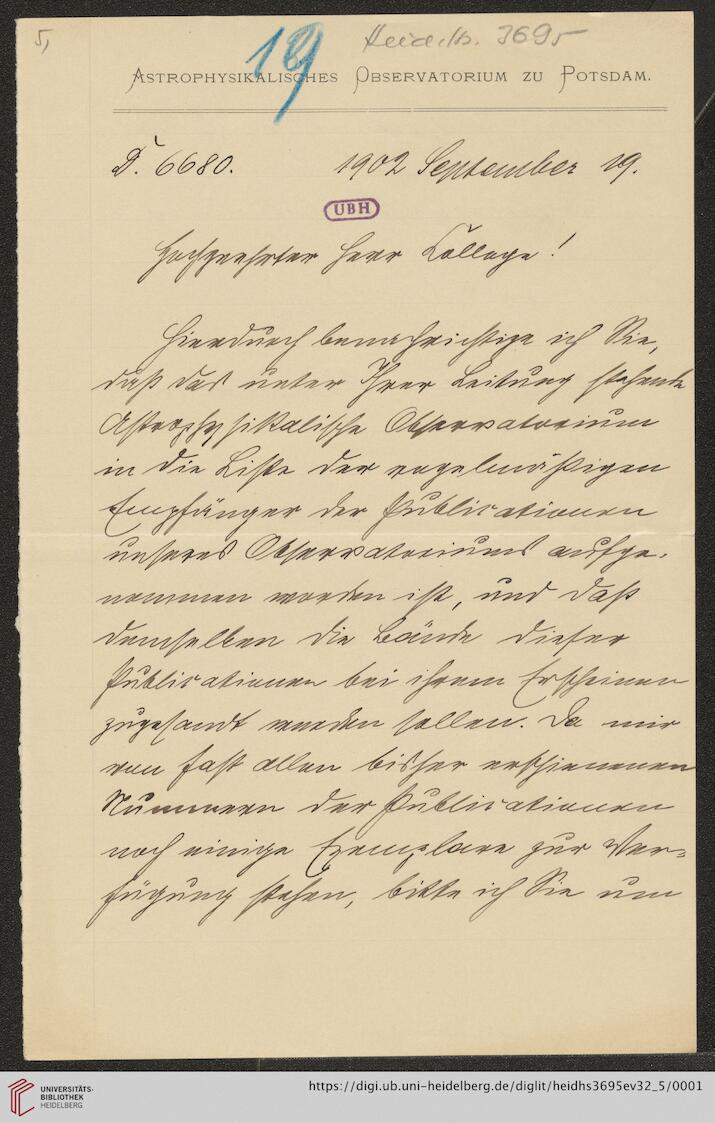 5,
19
Heid. Hs. 3695
ASTROPHYSIKALISCHES OBSERVATORIUM ZU POTSDAM.
D. 6680.
1902 September 19.
UBH
Hochgeehrter Herr College!
Hierdurch benachrichtige ich Sie,
daß das unter Ihrer Leitung stehende
Astrophysikalische Observatorium
in die Liste der regelmäßigen
Empfänger der Publicationen
unseres Observatoriums aufge-
nommen worden ist, und daß
demselben die Bände dieser
Publicationen bei ihrem Erscheinen
zugesandt werden sollen. Da mir
von fast allen bisher erschienenen
Nummern der Publicationen
noch einige Exemplare zur Ver-
fügung stehen, bitte ich Sie um
UNIVERSITÄTS-
BIBLIOTHEK
HEIDELBERG
https://digi.ub.uni-heidelberg.de/diglit/heidhs3695ev32_5/0001